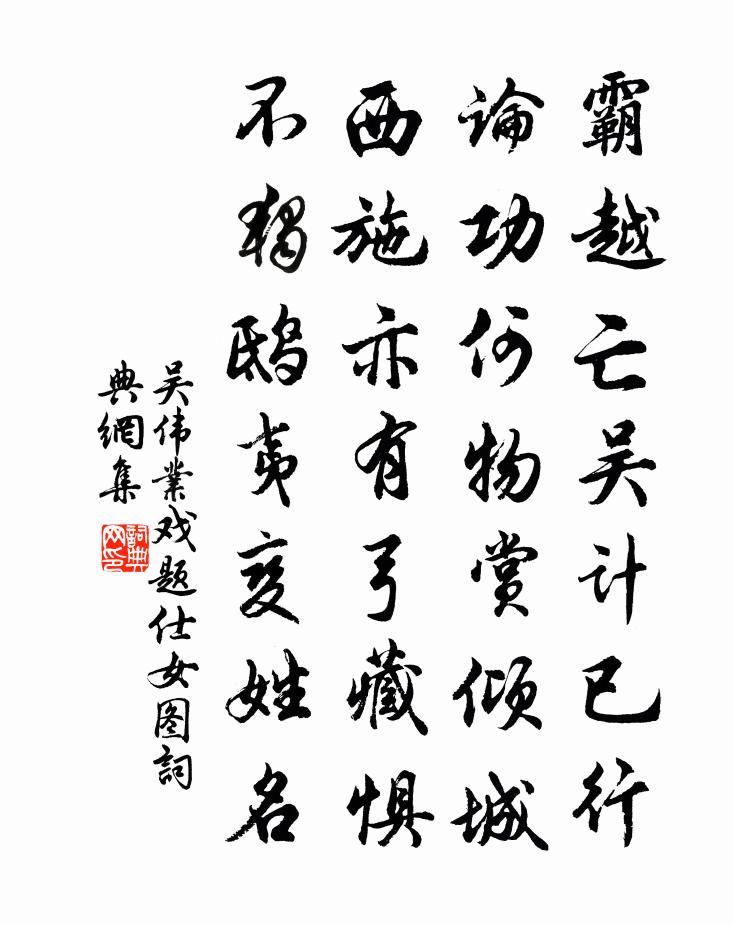 霸越亡吴计已行
論功何物赏倾城
西施亦有弓藏惧
不独鸱夷变姓名
吴伟業戏题仕女图詞
典網集
詞典网印